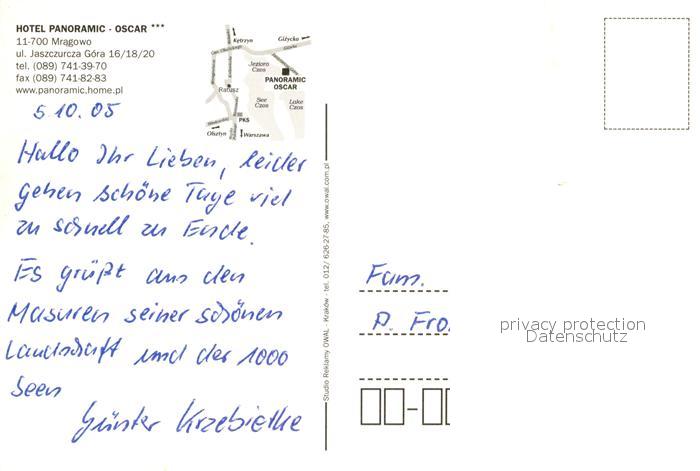 HOTEL PANORAMIC - OSCAR ***
11-700 Mrągowo
ul. Jaszczurcza Góra 16/18/20
tel. (089) 741-39-70
fax (089) 741-82-83
www.panoramic.home.pl
Kętrzyn
Giżycko
Jezioro
Czos
PANORAMIC
OSCAR
Ratusz
See
Czos
Lake
Czos
PKS
Olsztyn
Warszawa
5.10.05
Hallo Ihr Lieben, leider
gehen schöne Tage viel
zu schnell zu Ende.
Es grüßt aus den
Masuren seiner schönen
Landschaft und der 1000
Seen
Günter Krzebietke
Studio Reklamy OWAL - Kraków - tel. 012/ 626-27-85, www.owal.com.pl
Fam.
P. Fro.
privacy protection
Datenschutz